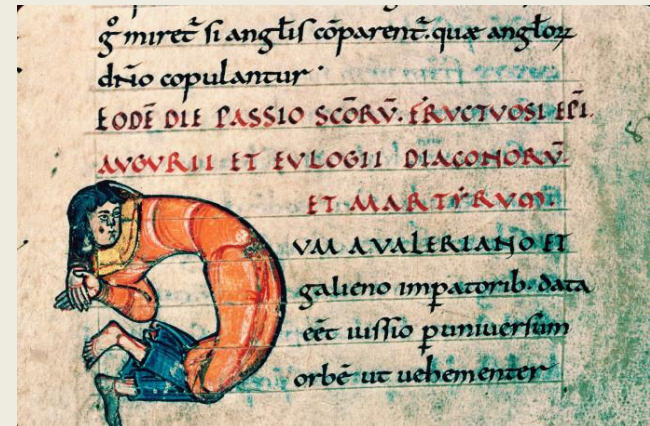 g̊ miret̃ si angl̃is cõparent̃. quæ anglorꝝ
dño copulantur.
EODẼ DIE PASSIO SCÕRṼ. FRVCTVOSI EP̃I.
AVGVRII ET EVLOGII DIACONORṼ.
ET MARTYRVM.
VM A VALERIANO ET
galieno imp̃atorib. data
eẽt iussio p̱ uniuersum
orbẽ ut uehementer